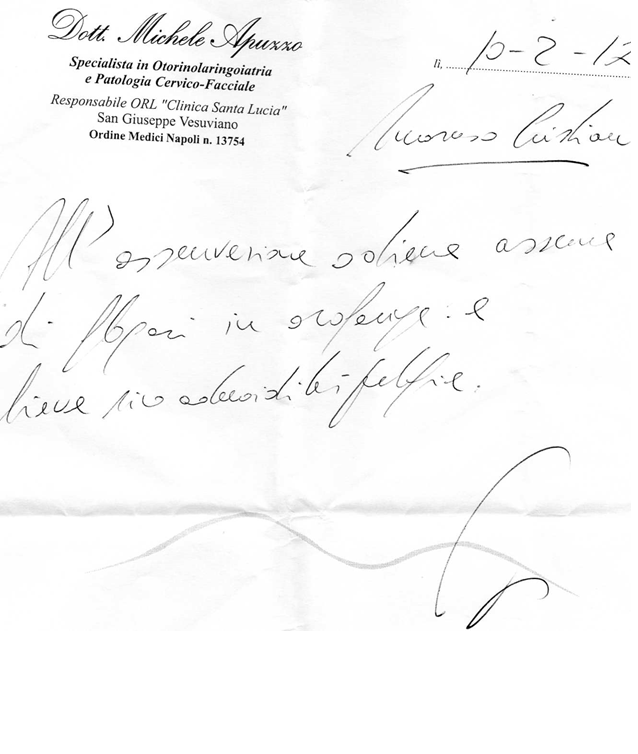 Dott. Michele Apuzzo
Specialista in Otorinolaringoiatria
e Patologia Cervico-Facciale
Responsabile ORL "Clinica Santa Lucia"
San Giuseppe Vesuviano
Ordine Medici Napoli n. 13754
lì, 10-2-12
Amoruso Cristian
All'osservazione odierna assenza
di in orofaringe. e
lieve rino adenoidite